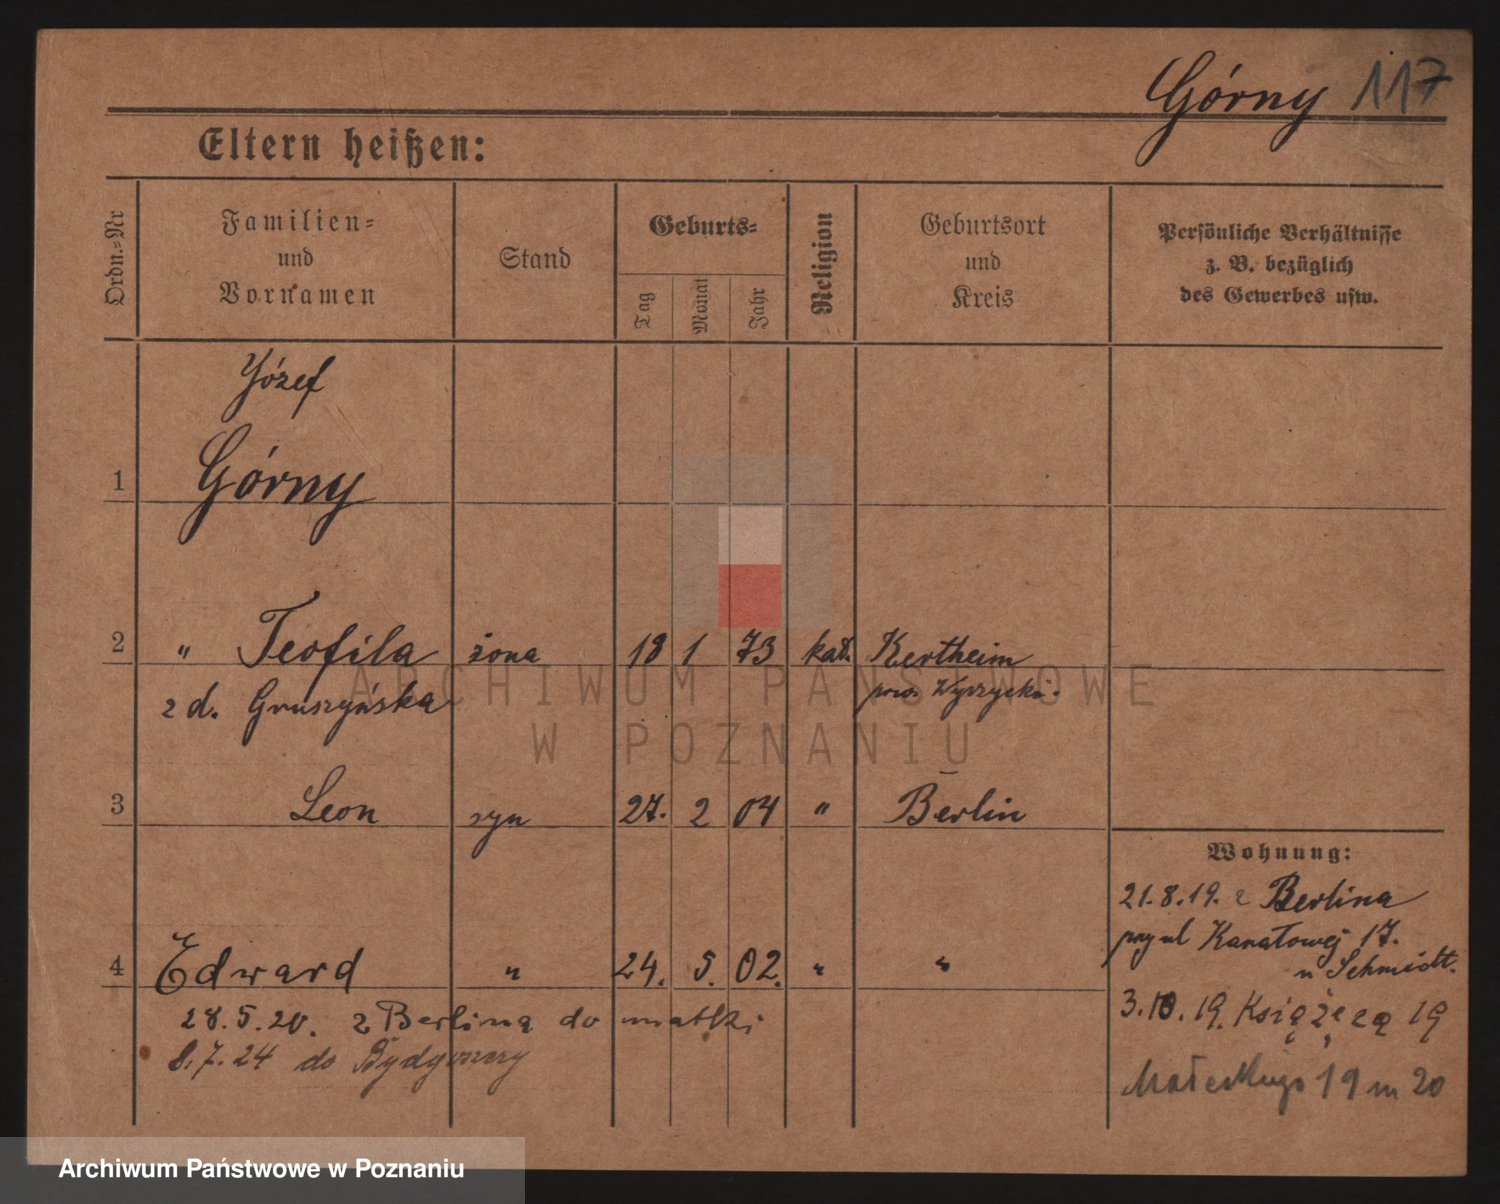 Górny 117
Eltern heißen:
Ordn.=Nr
Familien=
und
Vornamen
Stand
Geburts=
Tag
Monat
Jahr
Religion
Geburtsort
und
Kreis
Persönliche Verhältnisse
z. B. bezüglich
des Gewerbes usw.
Józef
1 Górny
2 " Teofila żona 18 1 73 kat. Kertheim
z d. Gruszyńska pow. Wyrzycki.
ARCHIWUM PAŃSTWOWE
W POZNANIU
3 Leon syn 27. 2 04 " Berlin
4 Edward " 24. 5. 02. " "
28.5.20. z Berlina do matki
8.7.24 do Bydgoszczy
Wohnung:
21.8.19. z Berlina
przy ul Kanałowej 17.
u Schmidt.
3.10.19. Książęca 19
Małeckiego 19 m 20
Archiwum Państwowe w Poznaniu